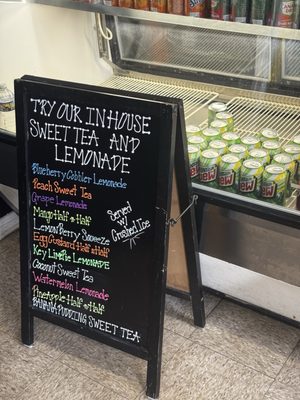 TRY OUR INHOUSE
SWEET TEA AND
LEMONADE
Blueberry Cobbler Lemonade
Peach Sweet Tea
Grape Lemonade
Mango Half & Half
Lemon Berry Squeeze
Egg Custard Half & Half
Key Lime Lemonade
Coconut Sweet Tea
Watermelon Lemonade
Pineapple Half & Half
BANANA PUDDING SWEET TEA
Served
w/
Crushed Ice